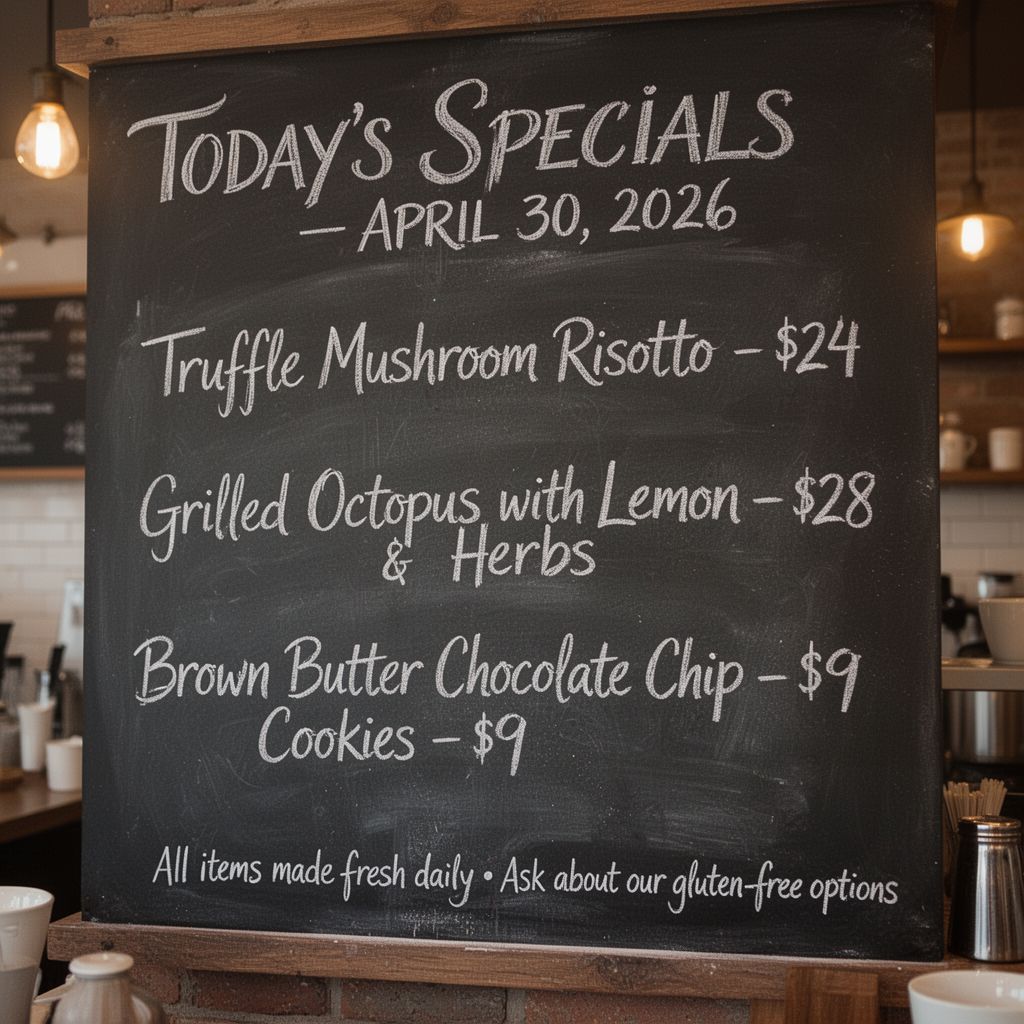 TODAY'S SPECIALS
— APRIL 30, 2026
Truffle Mushroom Risotto – $24
Grilled Octopus with Lemon – $28
& Herbs
Brown Butter Chocolate Chip – $9
Cookies – $9
All items made fresh daily • Ask about our gluten-free options